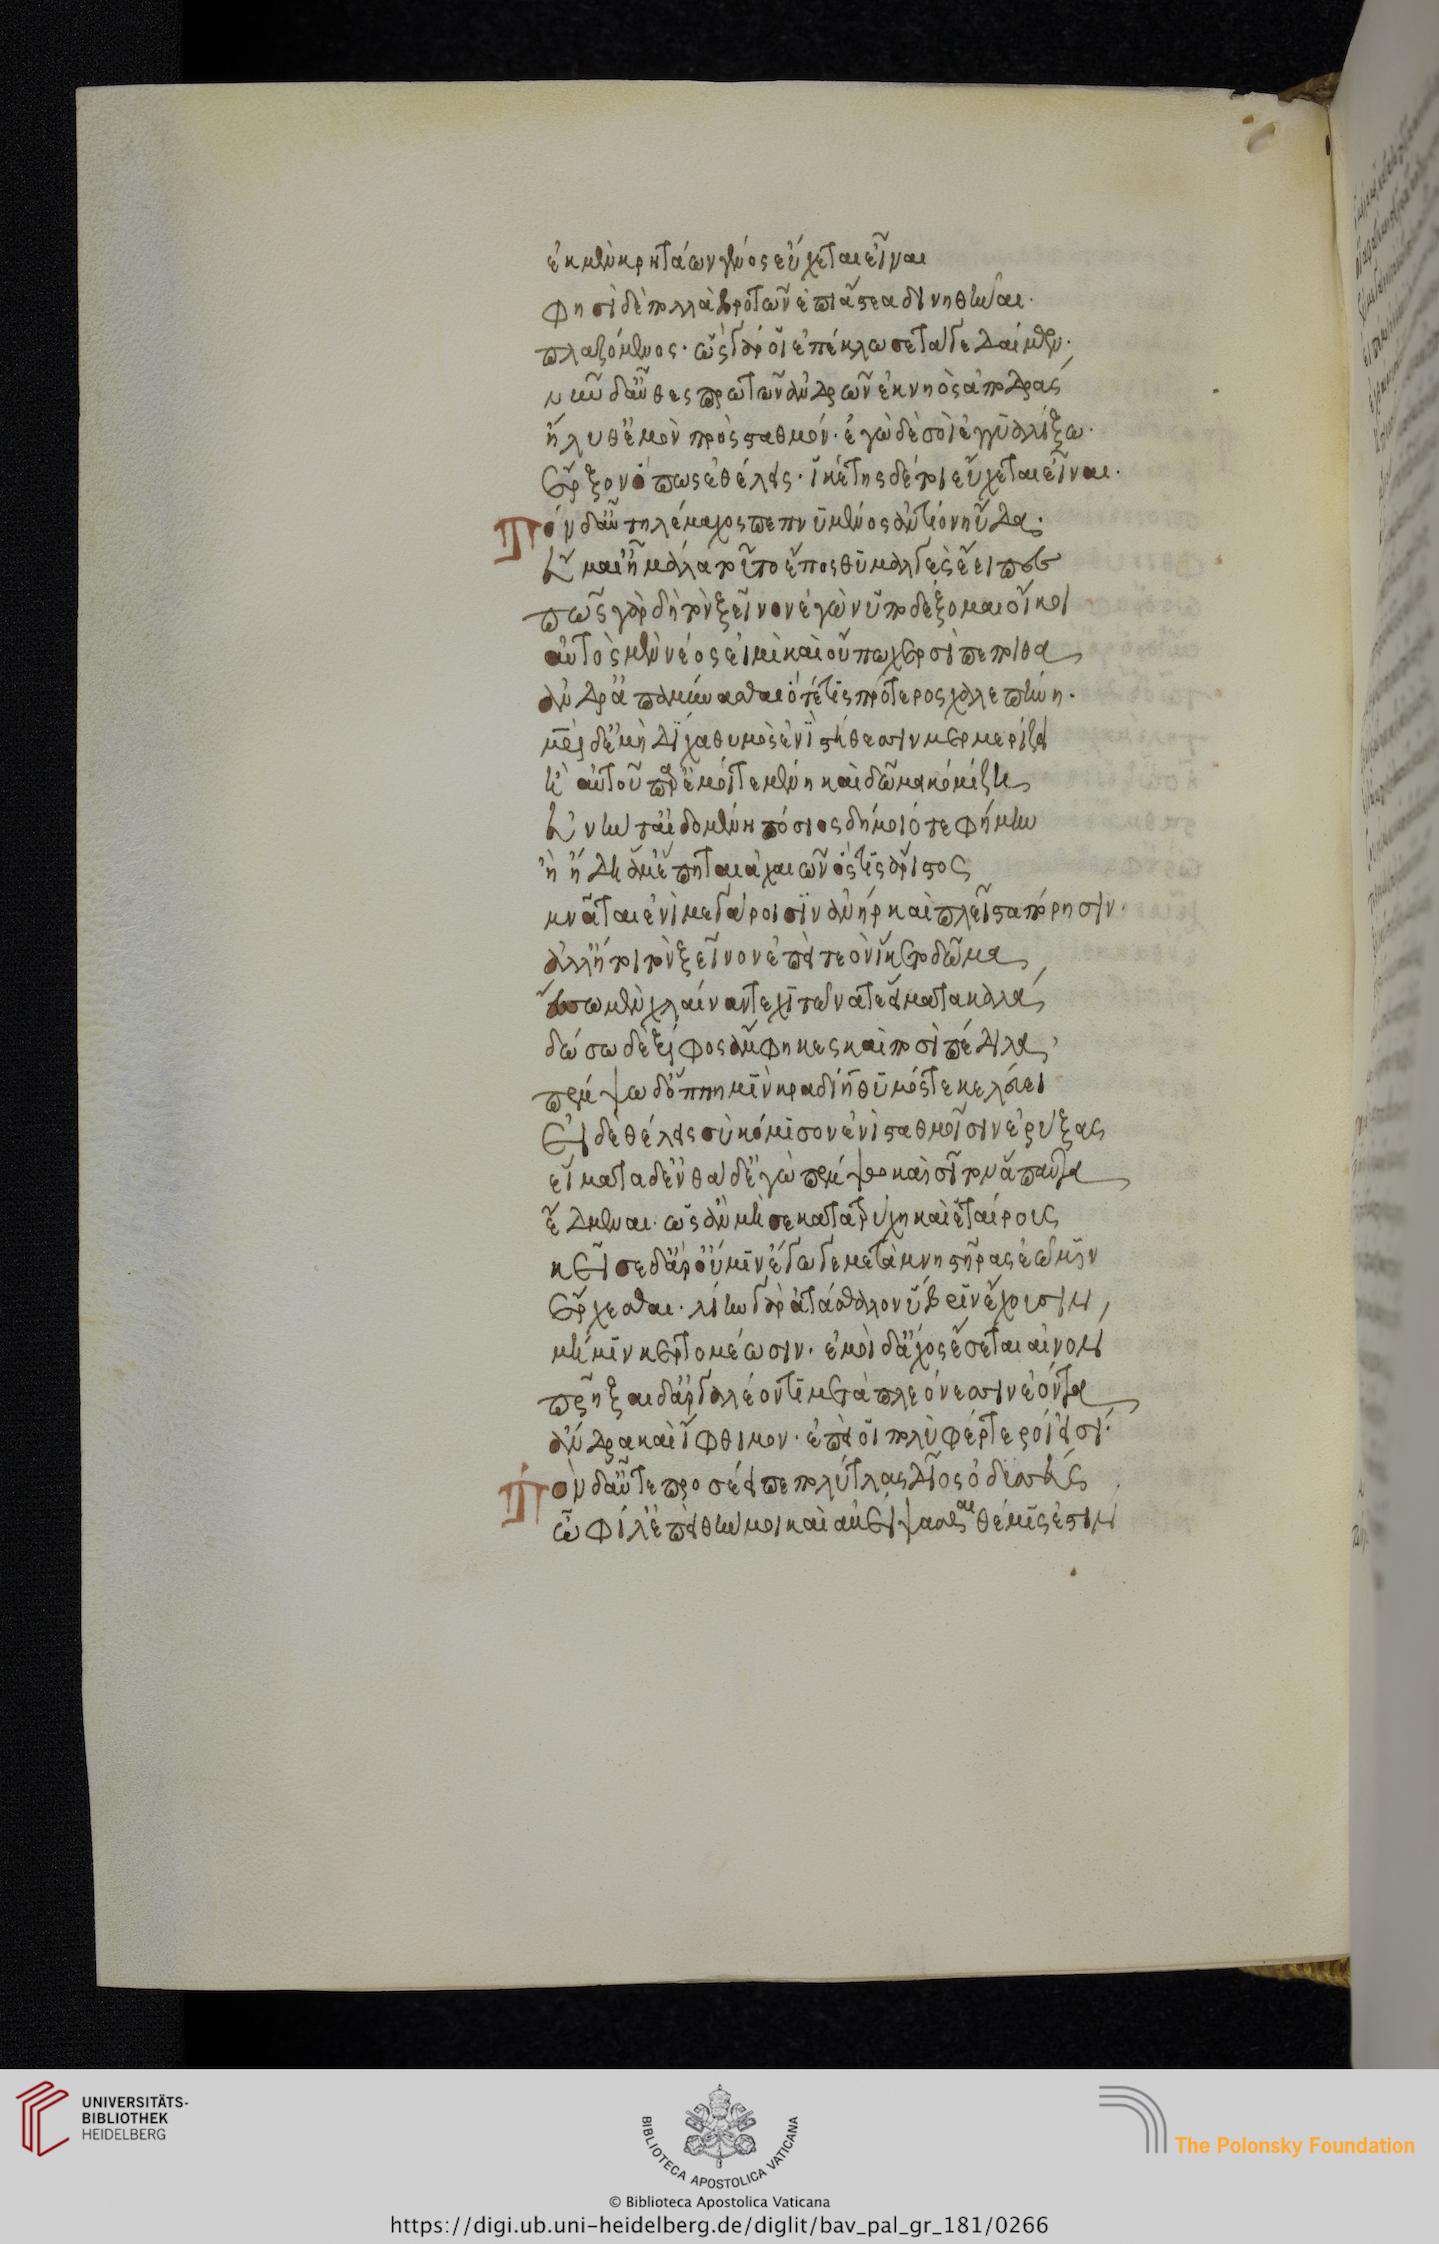 ἐκ μὲν κρητάων γένος εὔχεται εἶναι
φησὶ δὲ πολλὰ βροτῶν ἐπὶ ἄστεα δινηθῆναι·
πλαζόμενος· ὣς γάρ οἱ ἐπέκλωσε τάγε δαίμων·
νῦν δ' αὖ θεσπρωτῶν ἀνδρῶν ἐκ νηὸς ἀποδρὰς
ἤλυθ' ἐμὸν πρὸς σταθμόν· ἐγὼ δὲ σοὶ ἐγγυαλίξω·
ἔρξον ὅπως ἐθέλεις· ἱκέτης δέ τοι εὔχεται εἶναι·
Τὸν δ' αὖ τηλέμαχος πεπνυμένος ἀντίον ηὔδα·
εὔμαι' ἦ μάλα τοῦτο ἔπος θυμαλγὲς ἔειπες
πῶς γὰρ δὴ τὸν ξεῖνον ἐγὼν ὑποδέξομαι οἴκοι
αὐτὸς μὲν νέος εἰμὶ καὶ οὔπω χερσὶ πέποιθα
ἄνδρ' ἀπαμύνασθαι ὅτέ τις πρότερος χαλεπήνη·
μητρὶ δ' ἐμῇ δίχα θυμὸς ἐνὶ στήθεσσιν μερμερίζει
ἢ αὐτοῦ παρ' ἐμοί τε μένη καὶ δῶμα κομίζη
εὐνὴν τ' αἰδομένη πόσιος δήμοιό τε φήμην
ἢ ἤδη ἅμ' ἕπηται ἀχαιῶν ὅστις ἄριστος
μνᾶται ἐνὶ μεγάροισιν ἀνὴρ καὶ πλεῖστα πόρησιν·
ἀλλ' ἤτοι τὸν ξεῖνον ἐπεὶ τεὸν ἵκερ δῶμα
ἕσσω μὲν χλαίναν τε χιτῶνά τε εἵματα καλὰ
δώσω δὲ ξίφος ἄμφηκες καὶ ποσὶ πέδιλα
πέμψω δ' ὅππη μιν κραδίη θυμός τε κελεύει
Εἰ δ' ἐθέλεις σὺ κόμισον ἐνὶ σταθμοῖσιν ἐρύξας
εἵματα δ' ἐνθάδ' ἐγὼ πέμψω καὶ σῖτον ἅπαντα
ἔδμεναι· ὡς ἂν μή σε κατατρύχη καὶ ἑταίρους
κεῖσε δ' ἂν οὔ μιν ἔγωγε μετὰ μνηστῆρας ἐῶμιν
ἔρχεσθαι· λίην γὰρ ἀτάσθαλον ὕβριν ἔχουσιν
μή μιν κερτομέωσιν· ἐμοὶ δ' ἄχος ἔσεται αἰνὸν
πρῆξαι δ' ἀργαλέον τι μετὰ πλεόνεσσιν ἐόντα
ἄνδρα καὶ ἴφθιμον· ἐπεὶ οἱ πολὺ φέρτεροί εἰσί·
Τὸν δ' αὖτε προσέειπε πολύτλας δῖος ὀδυσσεύς
ὦ φίλ' ἐπεὶ θήν μοι καὶ ἀμείψασθαι θέμις ἐστὶν
UNIVERSITÄTS-
BIBLIOTHEK
HEIDELBERG
BIBLIOTECA APOSTOLICA VATICANA
The Polonsky Foundation
© Biblioteca Apostolica Vaticana
https://digi.ub.uni-heidelberg.de/diglit/bav_pal_gr_181/0266